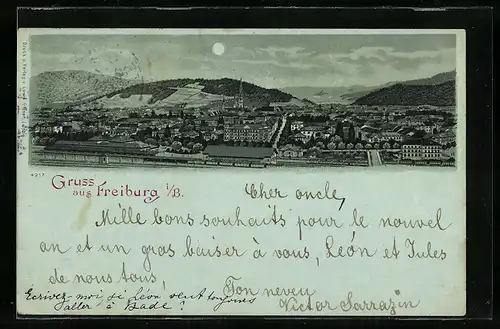 4217
Gruss
aus Freiburg i/B.
Cher oncle,
Mille bons souhaits pour le nouvel
an et un gros baiser à vous, Léon et Jules
de nous tous,
Ton neveu
Victor Sarrazin
Ecrivez moi si Léon veut toujours
aller à Bade?